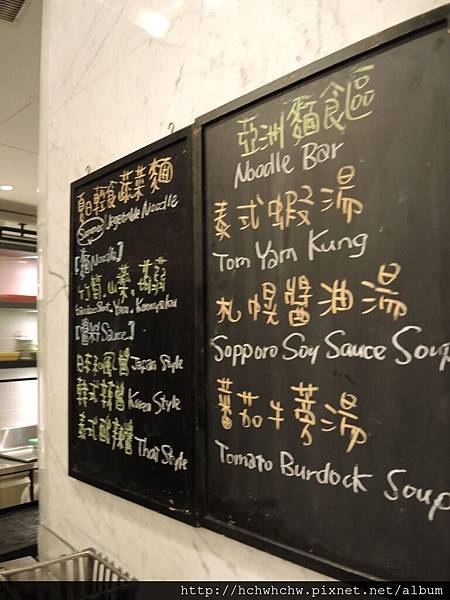 夏日輕食蔬菜麵
Summer Vegetable Noodle
【麵 Noodle】
竹筍、山藥、蒟蒻
Bamboo Shoot, Yam, Konnyaku
【醬料 Sauce】
日本和風醬 Japan Style
韓式辣醬 Korea Style
泰式酸辣醬 Thai Style
亞洲麵食區
Noodle Bar
泰式蝦湯
Tom Yam Kung
札幌醬油湯
Sopporo Soy Sauce Soup
蕃茄牛蒡湯
Tomato Burdock Soup
http://hchwhchw.pixnet.net/album